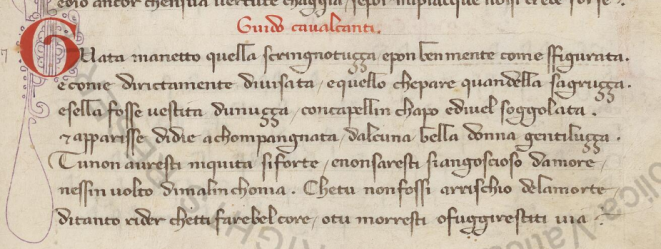 edio ancor chensua vertute chaggia, sepoi mipiacque nolsi crede forse.
Guido cavalcanti.
Guata manetto quella scringnotuçça epon benmente come sfigurata.
ecome dirictamente divisata, equello chepare quandella sagruçça.
esella fosse vestita dunuçça, concapellin chapo edivel soggolata.
⁊ apparisse didie achompangnata, dalcuna bella donna gentiluçça.
Tunon auresti niquita siforte, enonsaresti siangoscioso damore,
nessin volto dimalinchonia. Chetu nonfossi arrischio delamorte
ditanto rider chetti farebel core, otu morresti ofuggirestiti via.